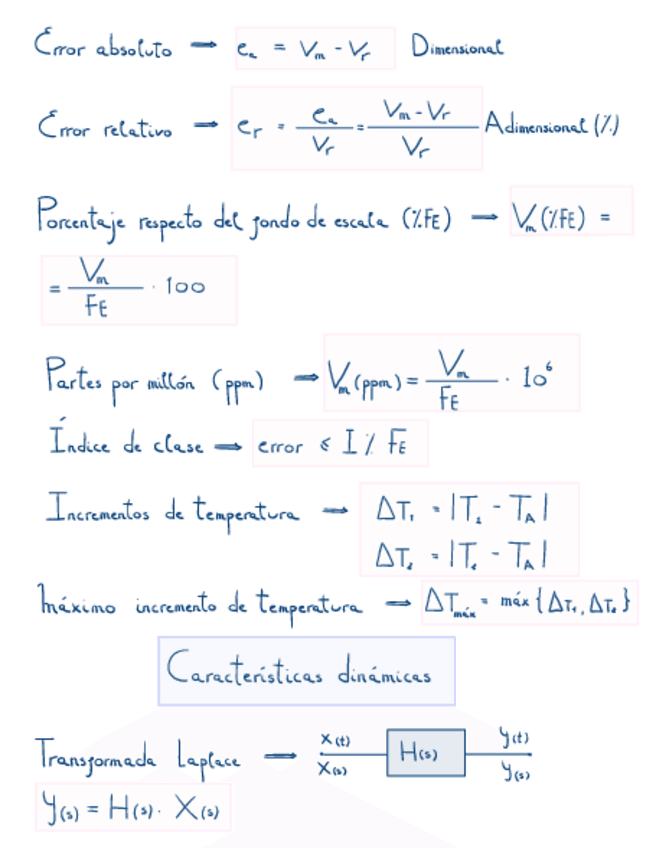 Error absoluto → eₐ = Vₘ - Vᵣ Dimensional
Error relativo → eᵣ = eₐ / Vᵣ = (Vₘ - Vᵣ) / Vᵣ Adimensional (%)
Porcentaje respecto del fondo de escala (%FE) → Vₘ(%FE) =
= Vₘ / FE · 100
Partes por millón (ppm) → Vₘ(ppm) = Vₘ / FE · 10⁶
Índice de clase → error ≤ I % FE
Incrementos de temperatura → ΔT₁ = |T₁ - T_A|
ΔT₂ = |T₂ - T_A|
Máximo incremento de temperatura → ΔT_máx = máx {ΔT₁, ΔT₂}
Características dinámicas
Transformada Laplace → x(t) X(s) H(s) y(t) y(s)
y(s) = H(s) · X(s)